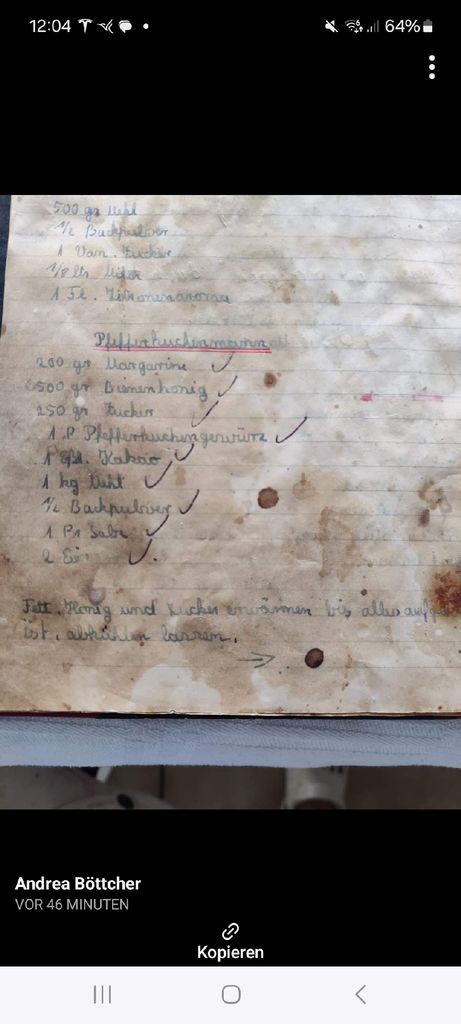 12:04
64%
500 gr Mehl
1/2 Backpulver
1 Van. Zucker
1/8 ltr Milch
1 Fl. Zitronenaroma
Pfefferkuchenmann
200 gr Margarine
500 gr Bienenhonig
250 gr Zucker
1 P Pfefferkuchengewürz
1 Eßl. Kakao
1 kg Mehl
1/2 Backpulver
1 Pr Salz
2 Eier
Fett, Honig und Zucker erwärmen bis alles
ist, abkühlen lassen.
→
Andrea Böttcher
VOR 46 MINUTEN
Kopieren